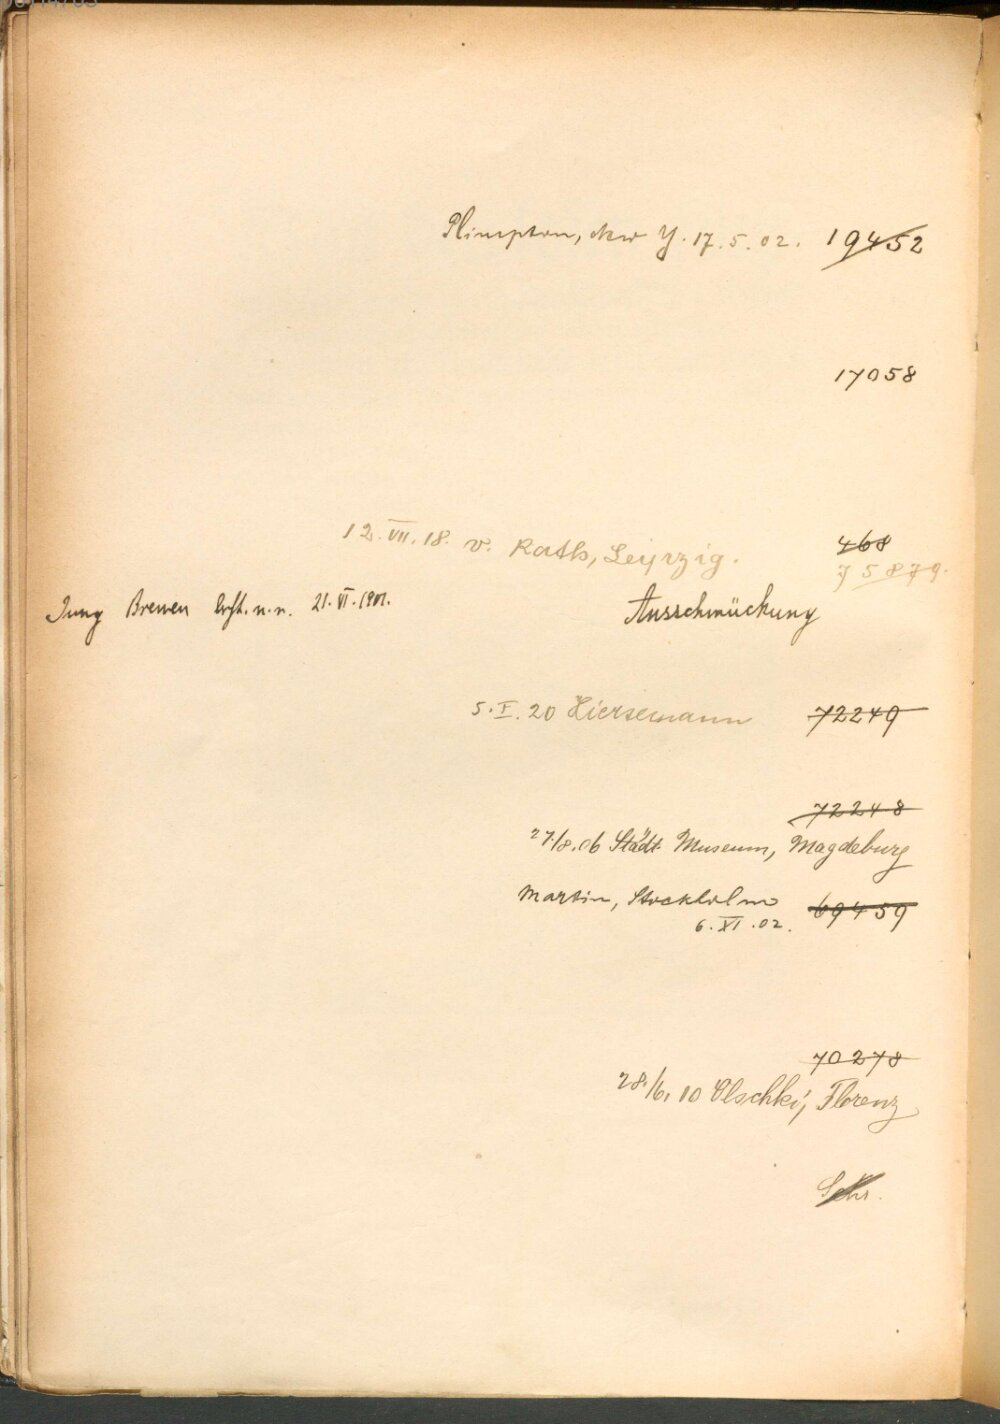 Plimpton, New Y. 17.5.02. 19452
17058
12.VII.18. v. Rath, Leipzig. 468
75879.
Jung Bremen n.n. 21.VI.1901. Ausschmückung
5.I.20 Hiersemann 72249
72248
27/8.06 Städt. Museum, Magdeburg
Martin, Stockholm 69459
6.XI.02.
70278
28./6.10 Olschki, Florenz
Schr.